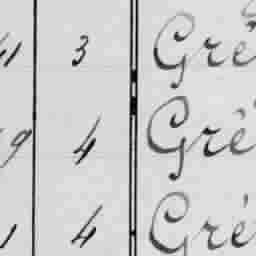 41 3 Gré
9 4 Gré
1 4 Gré